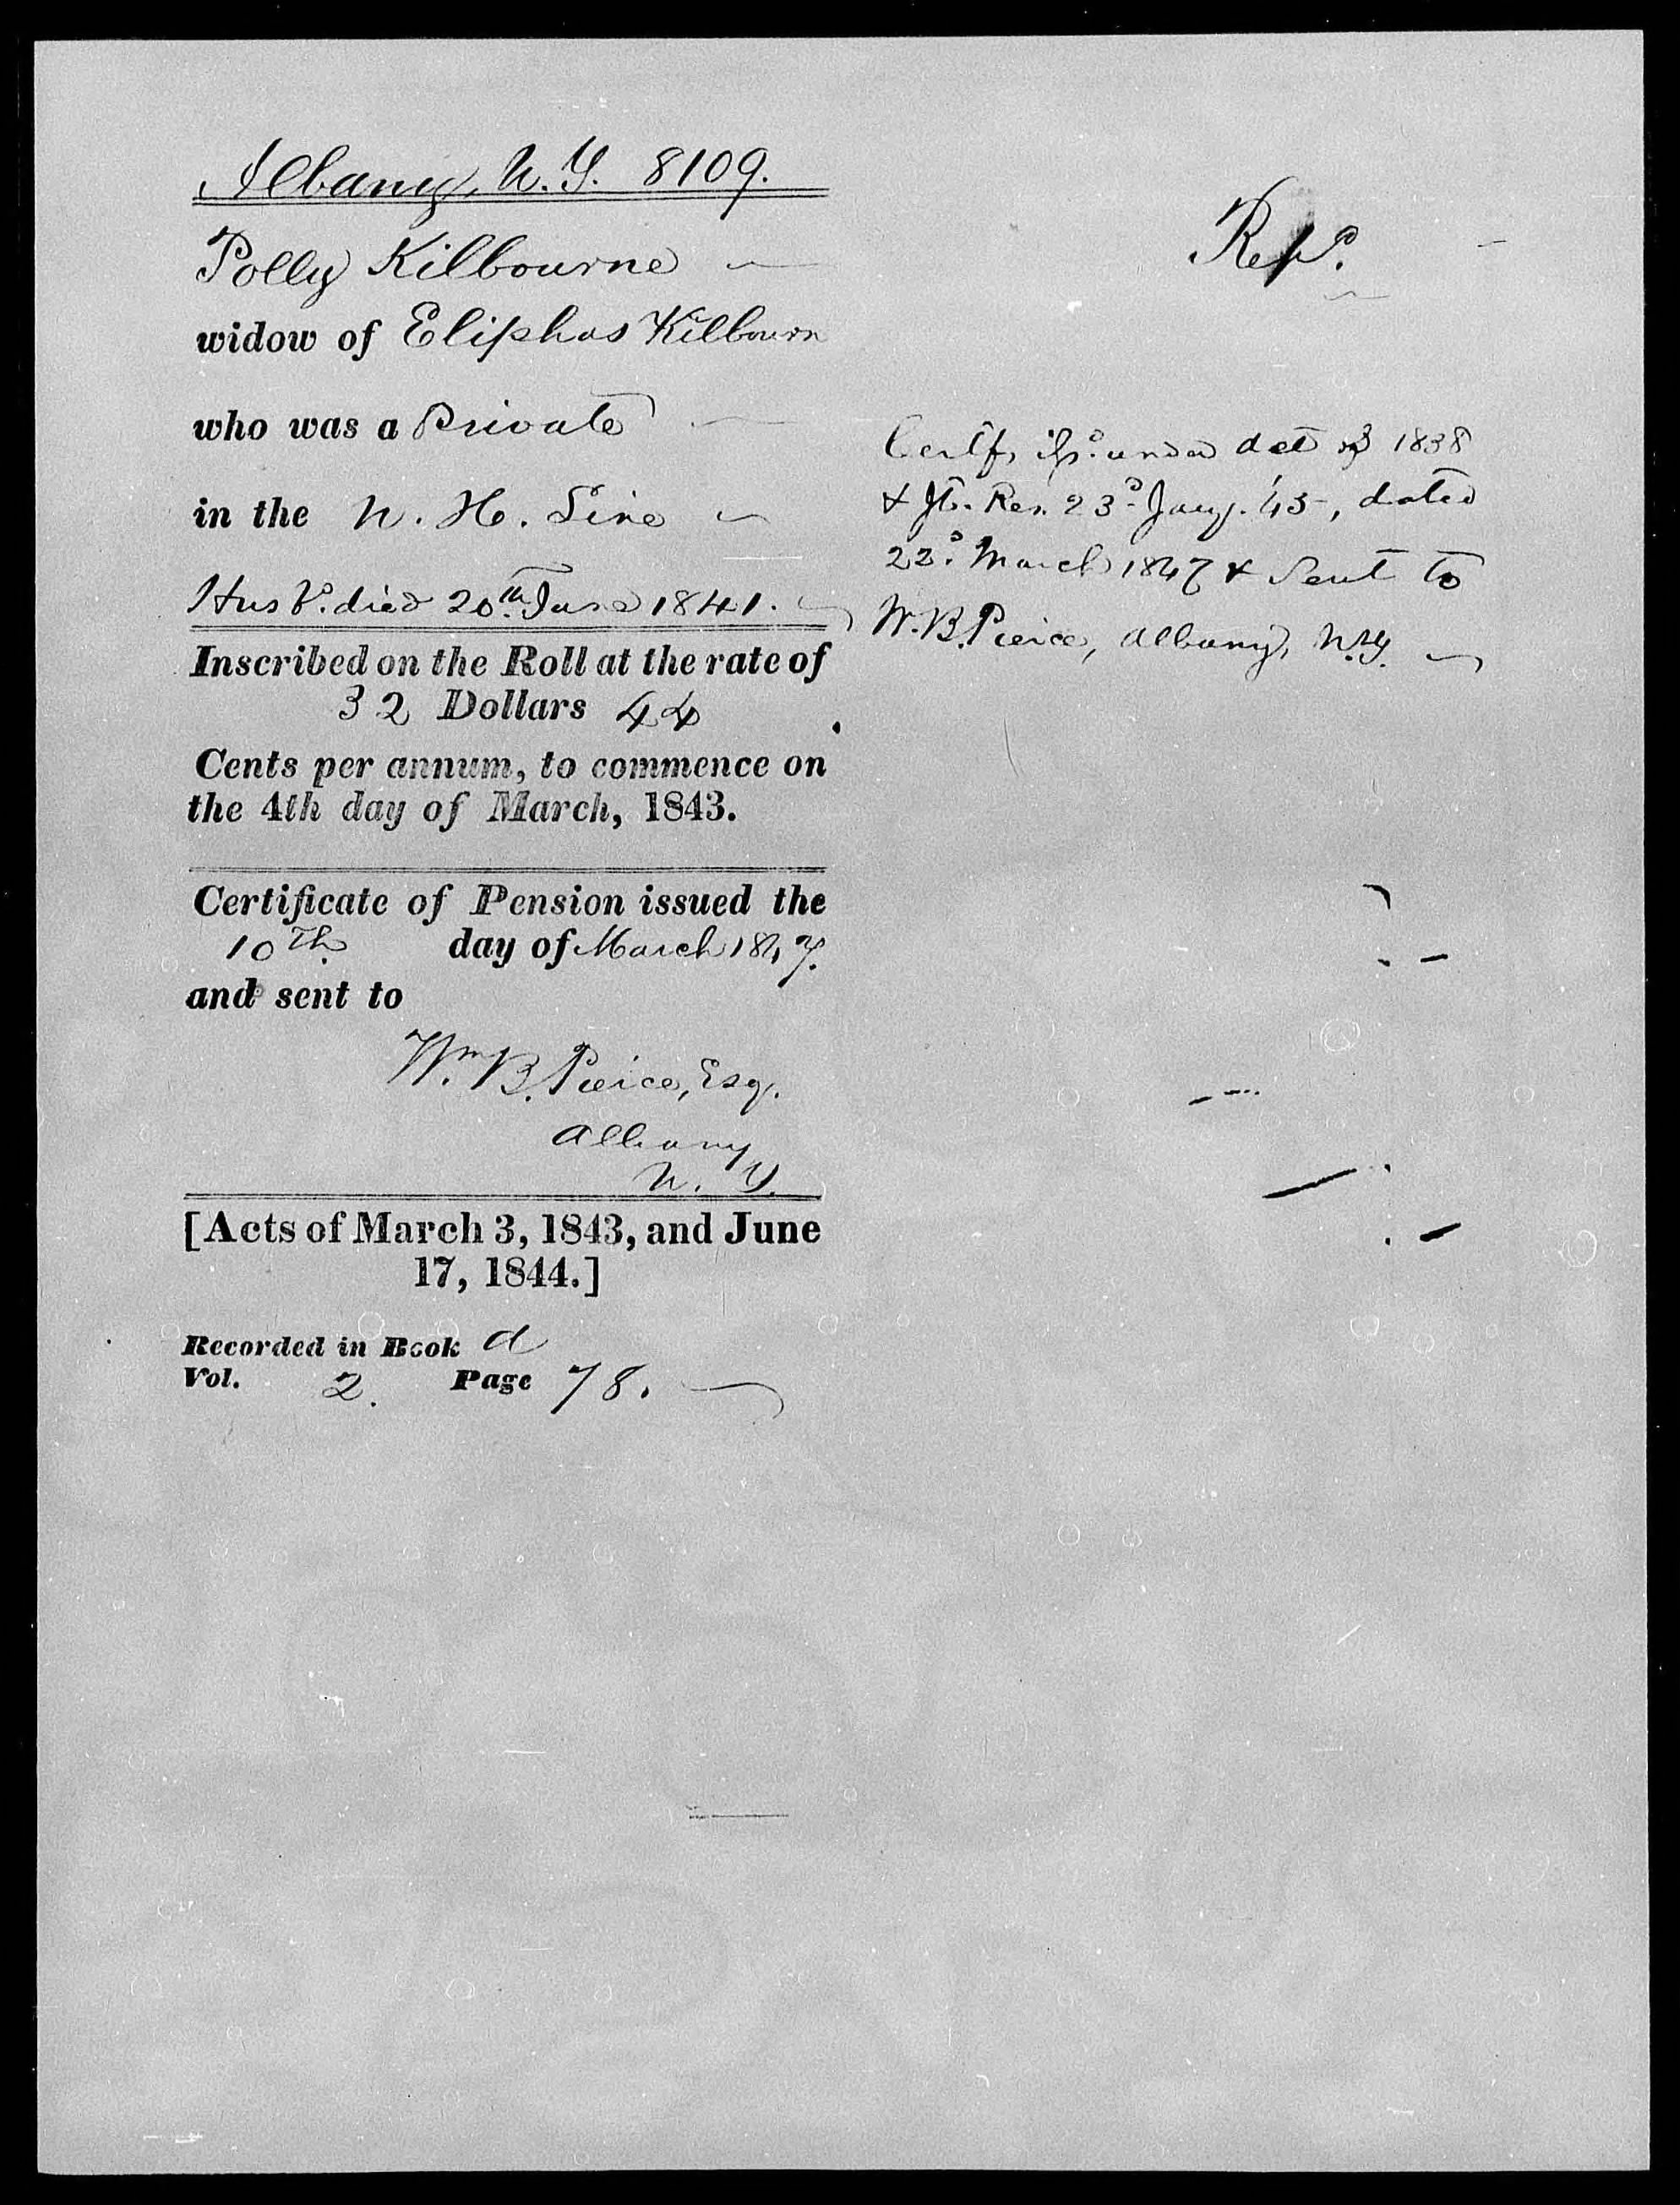 Albany, N.Y. 8109.
Polly Kilbourne
widow of Eliphas Kilbourn
who was a Private
in the N. H. Line
Husbd. died 20th. June 1841.
Inscribed on the Roll at the rate of
32 Dollars 44
Cents per annum, to commence on
the 4th day of March, 1843.
Certificate of Pension issued the
10th. day of March 1847.
and sent to
Wm. B. Pierce, Esq.
Albany
N. Y.
[Acts of March 3, 1843, and June
17, 1844.]
Recorded in Book A
Vol. 2. Page 78.
Certf. issd. under act of 1838
& Jt. Res. 23d. Jany. '45, dated
22d. March 1847 & Sent to
W. B. Pierce, Albany, N.Y.